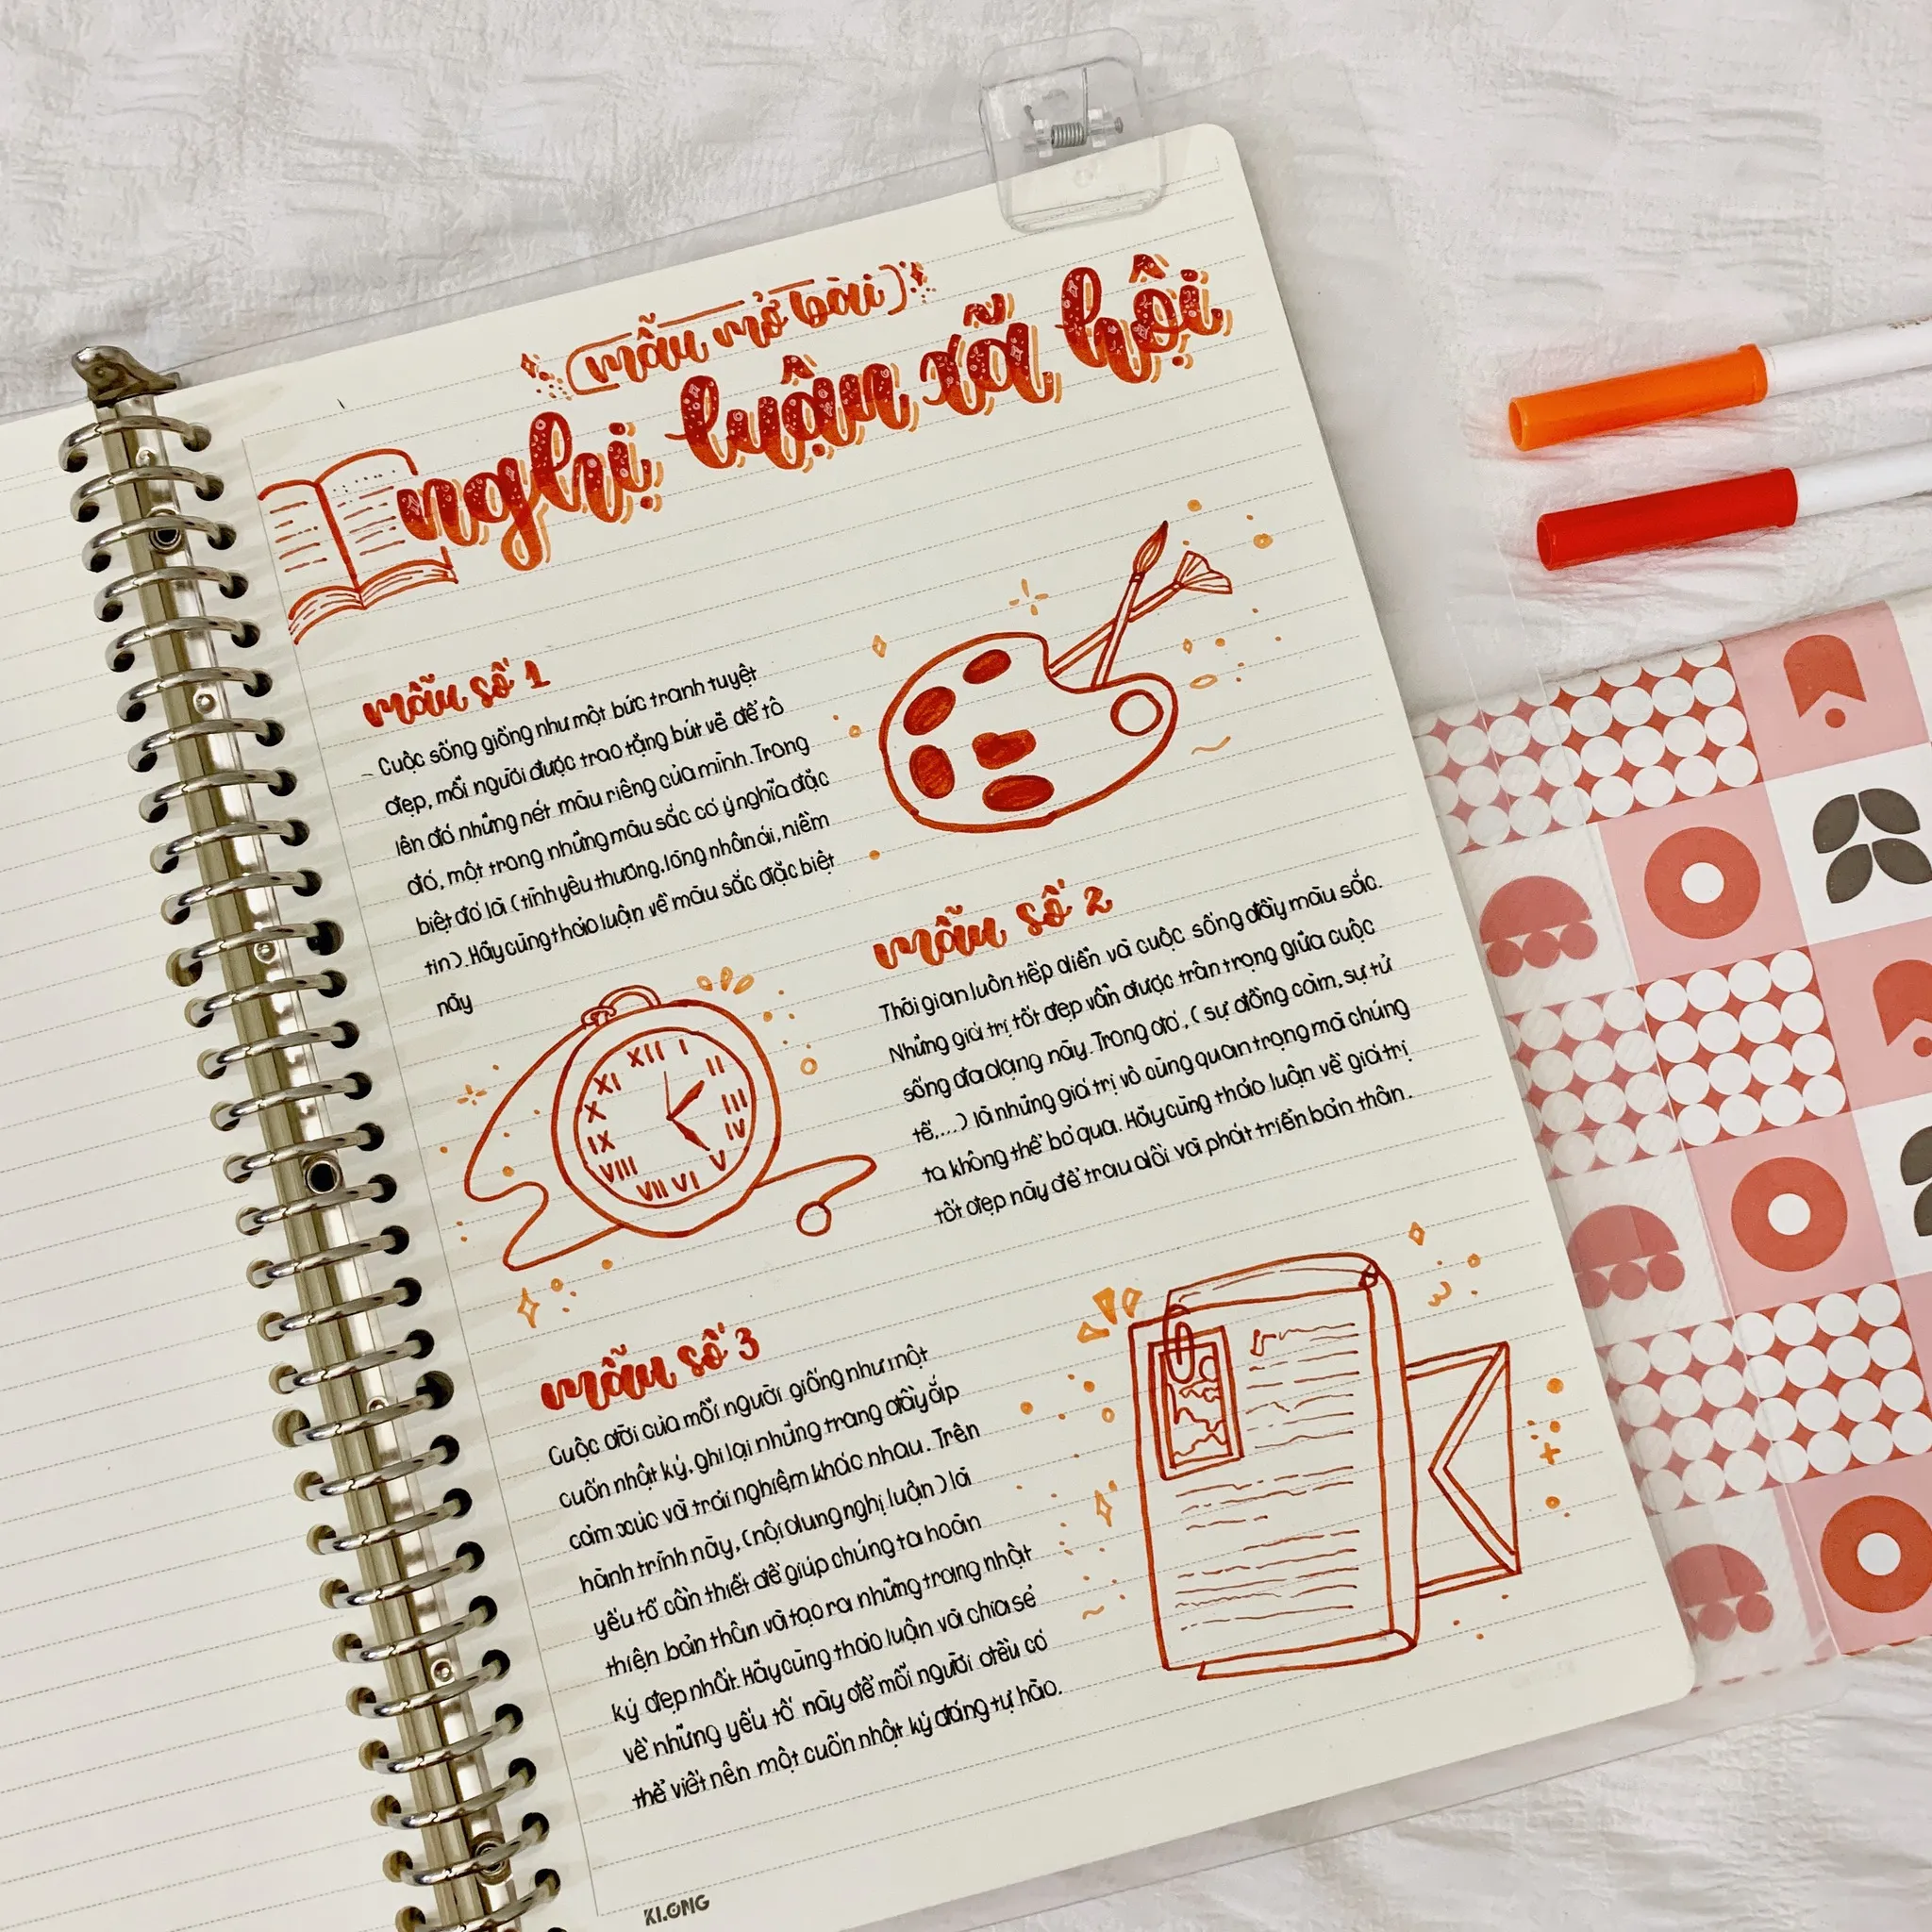 mẫu mở bài
nghị luận xã hội
mẫu số 1
- Cuộc sống giống như một bức tranh tuyệt
đẹp, mỗi người được trao tặng bút vẽ để tô
lên đó những nét màu riêng của mình. Trong
đó, một trong những màu sắc có ý nghĩa đặc
biệt đó là (tình yêu thương, lòng nhân ái, niềm
tin). Hãy cùng thảo luận về màu sắc đặc biệt
này
XII I II III IV V VI VII VIII IX X XI
mẫu số 2
Thời gian luôn tiếp diễn và cuộc sống đầy màu sắc.
Những giá trị tốt đẹp vẫn được trân trọng giữa cuộc
sống đa dạng này. Trong đó, (sự đồng cảm, sự tử
tế,...) là những giá trị vô cùng quan trọng mà chúng
ta không thể bỏ qua. Hãy cùng thảo luận về giá trị
tốt đẹp này để trau dồi và phát triển bản thân.
mẫu số 3
Cuộc đời của mỗi người giống như một
cuốn nhật ký, ghi lại những trang đầy ắp
cảm xúc và trải nghiệm khác nhau. Trên
hành trình này, (nội dung nghị luận) là
yếu tố cần thiết để giúp chúng ta hoàn
thiện bản thân và tạo ra những trang nhật
ký đẹp nhất. Hãy cùng thảo luận và chia sẻ
về những yếu tố này để mỗi người đều có
thể viết nên một cuốn nhật ký đáng tự hào.
KLONG